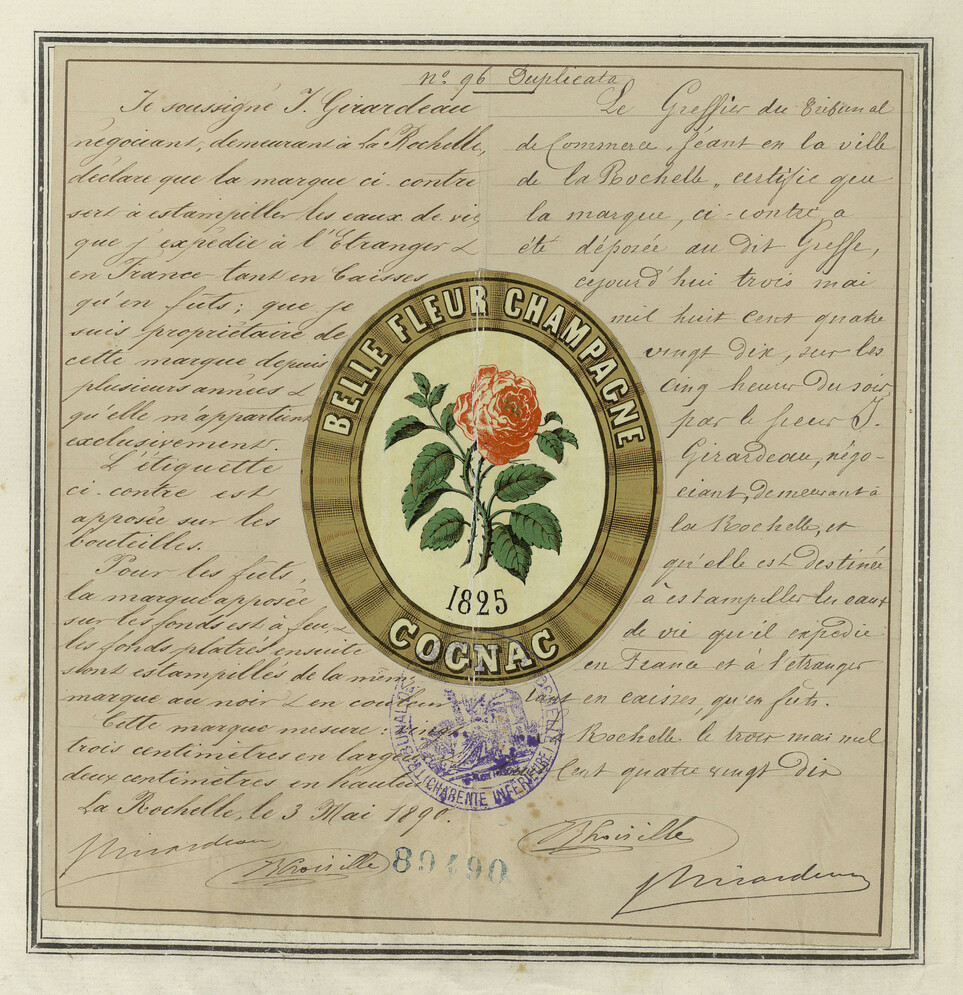 nº 96 Duplicata
Je soussigné J. Girardeau
négociant, demeurant à La Rochelle,
déclare que la marque ci-contre
sert à estampiller les eaux de vie,
que j'expédie à l'Etranger &
en France tant en Caisses
qu'en futs; que je
suis propriétaire de
cette marque depuis
plusieurs années &
qu'elle m'appartient
exclusivement.
L'étiquette
ci-contre est
apposée sur les
bouteilles.
Pour les futs,
la marque apposée
sur les fonds est à feu &
les fonds platrés ensuite
sont estampillés de la même
marque au noir & en couleur
Cette marque mesure:
trois centimètres en large
deux centimètres en hauteur
La Rochelle, le 3 Mai 1890.
JGirardeau
89490
Le Greffier du Tribunal
de Commerce, séant en la ville
de la Rochelle, certifie que
la marque, ci-contre, a
été déposée au dit Greffe,
cejourd'hui trois mai
mil huit cent quatre
vingt dix, sur les
cinq heures du soir
par le sieur J.
Girardeau, négo-
ciant, demeurant à
la Rochelle, et
qu'elle est destinée
à estampiller les eaux
de vie qu'il expédie
en France et à l'étranger
tant en caisses, qu'en futs.
Rochelle le trois mai mil
cent quatre vingt dix
JGirardeau
BELLE FLEUR CHAMPAGNE
1825
COGNAC
TRIBUNAL
CHARENTE INFERIEURE